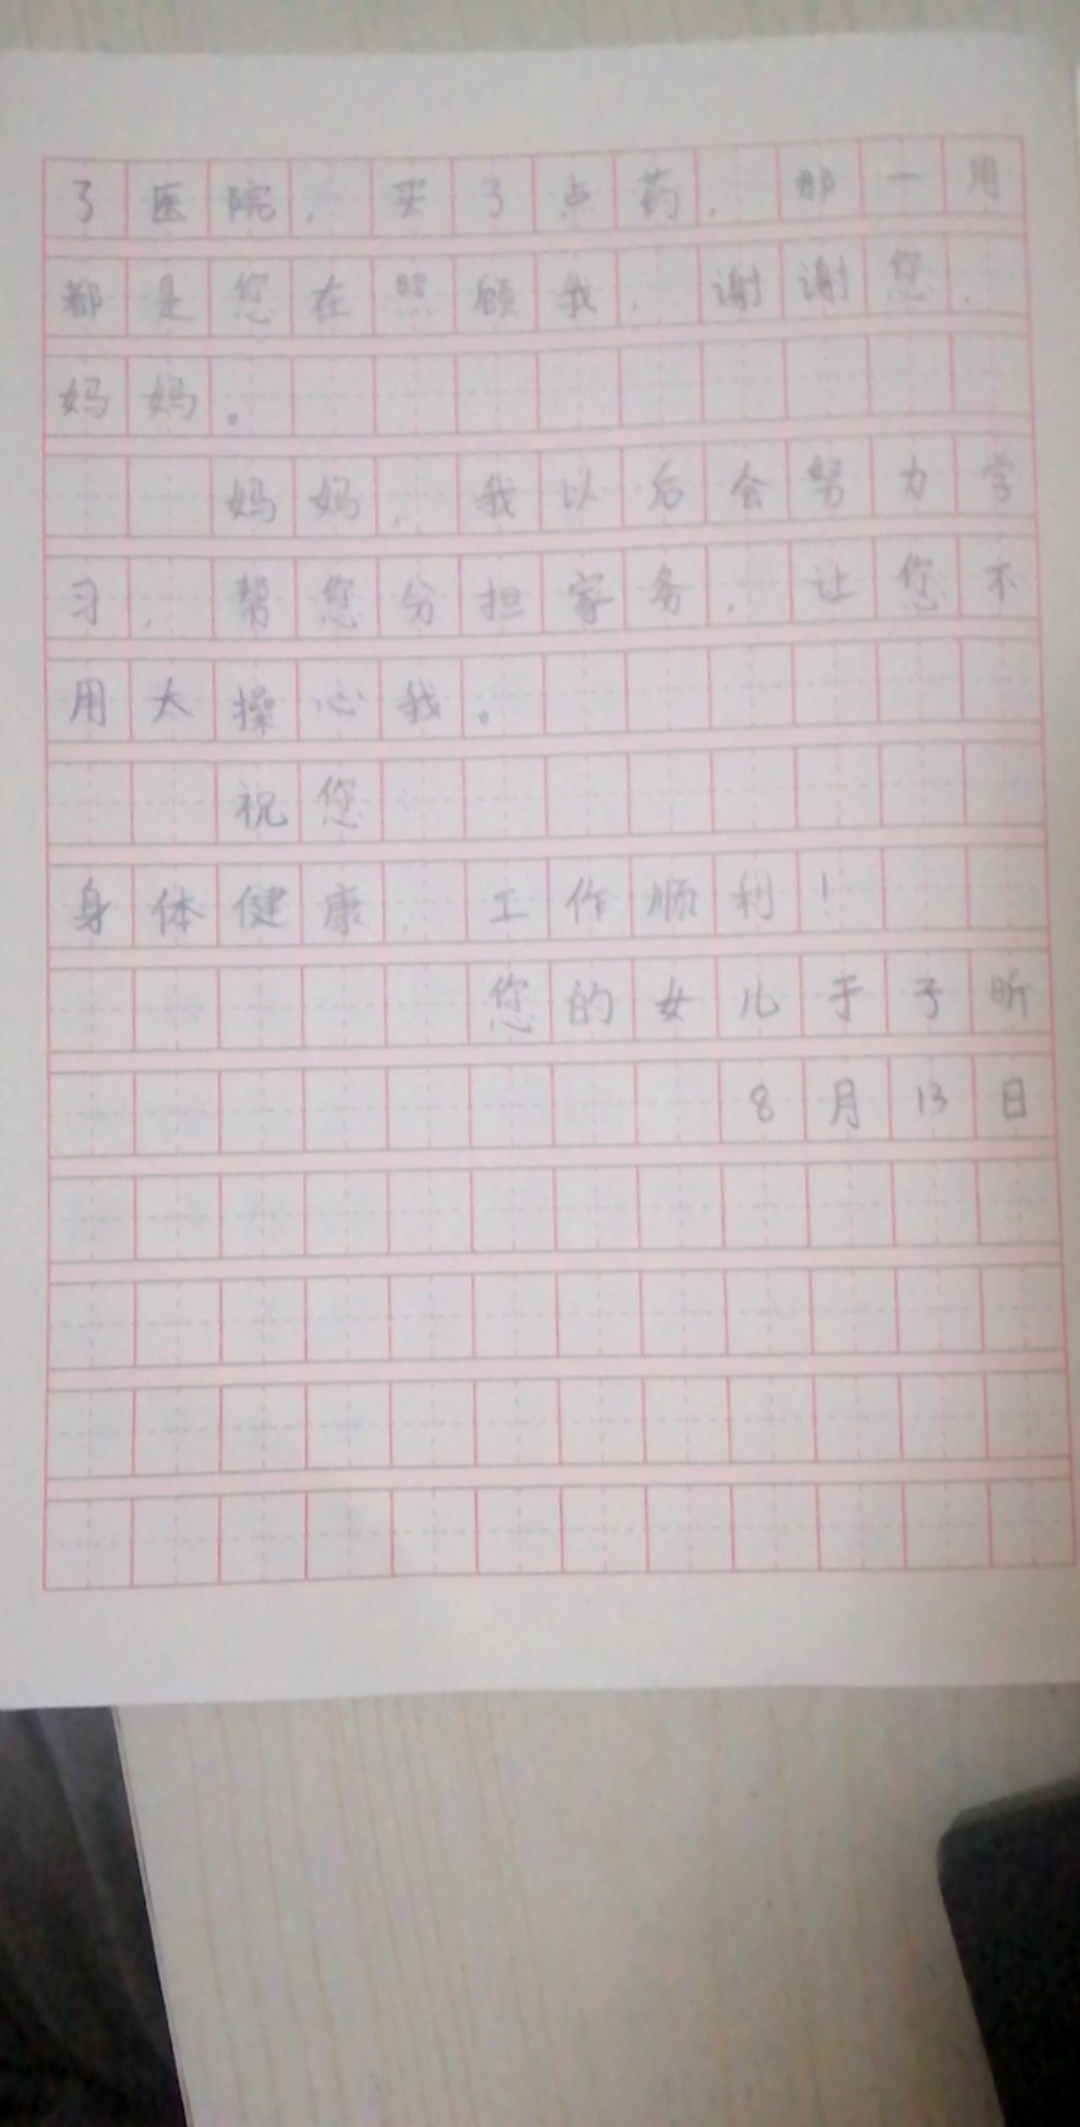 了医院，买了点药，那一周
都是您在照顾我，谢谢您，
妈妈。
妈妈，我以后会努力学
习，帮您分担家务，让您不
用太操心我。
祝您
身体健康，工作顺利！
您的女儿于子昕
8月13日